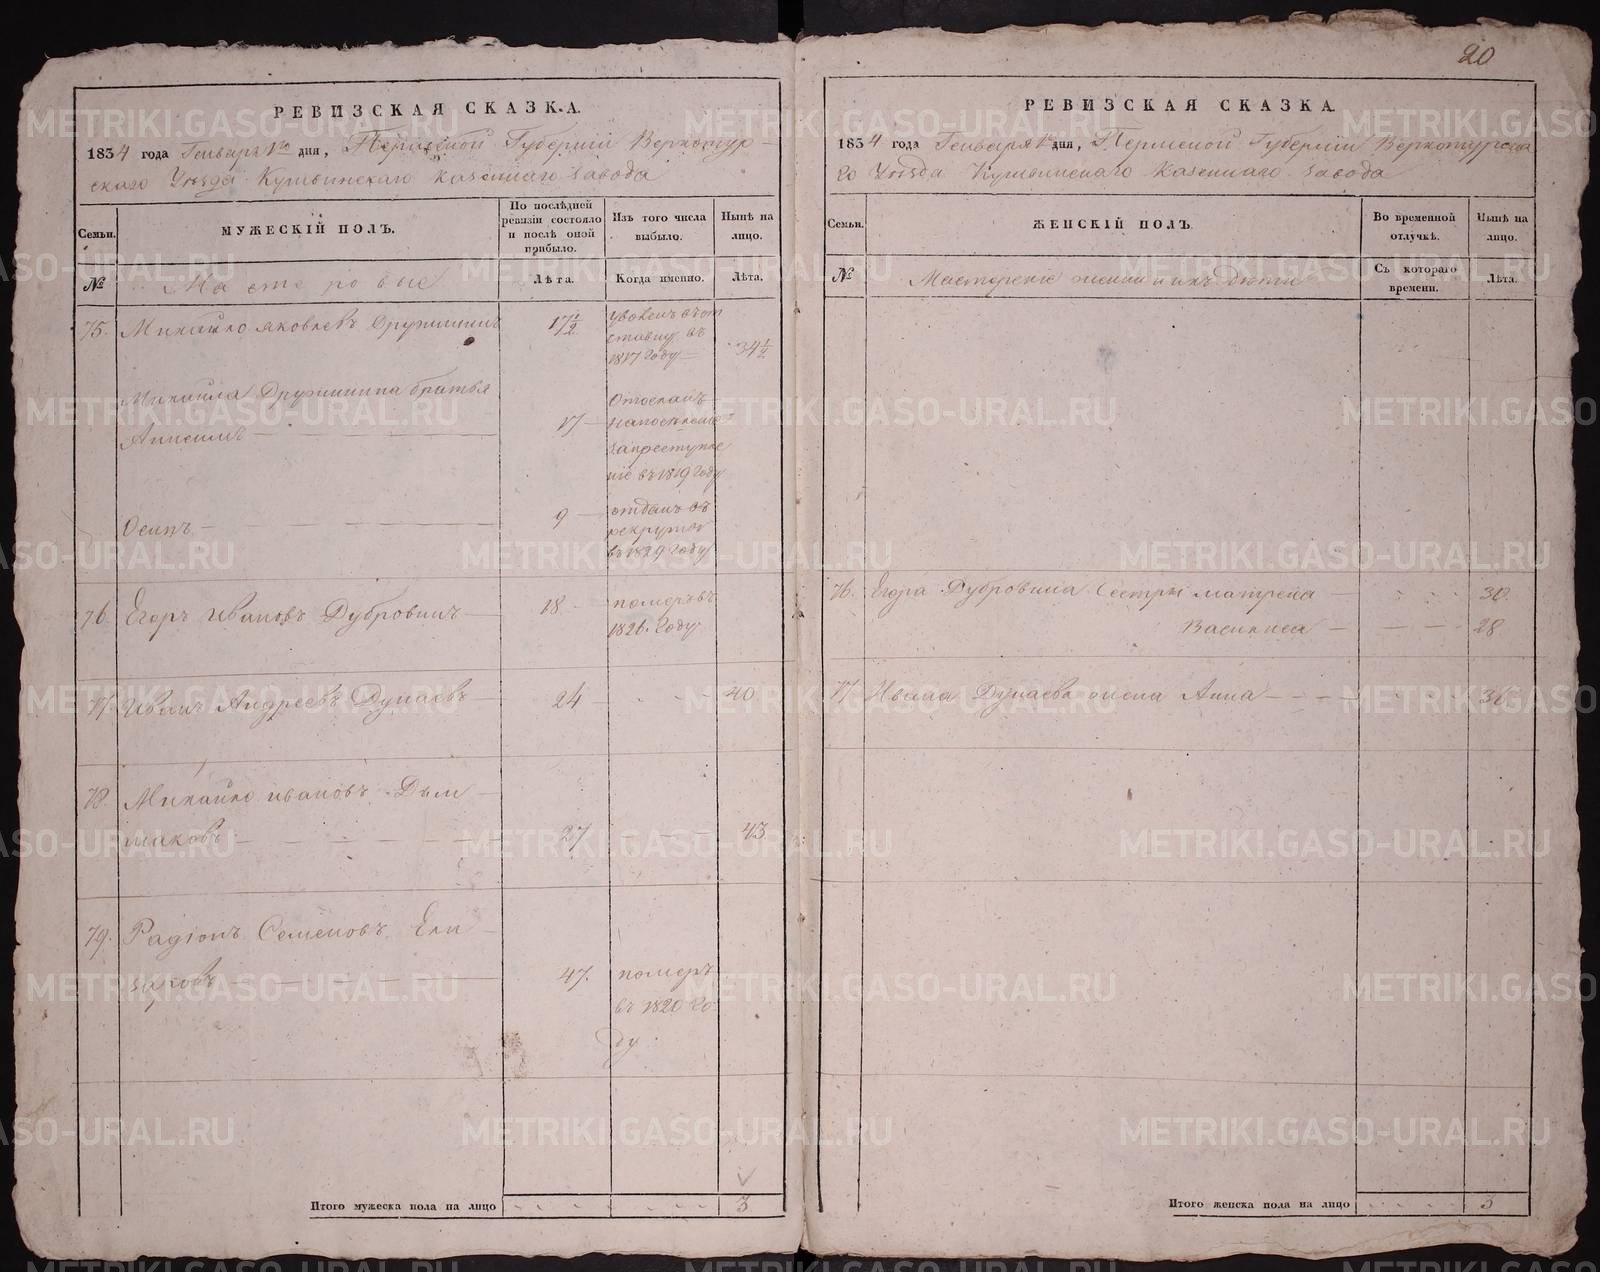 20
РЕВИЗСКАЯ СКАЗКА.
1834 года Генваря 1го дня, Пермской Губернии Верхотур-
скаго Уезда Кушвинскаго казеннаго завода
Семьи.
МУЖЕСКІЙ ПОЛЪ.
По послѣдней ревизіи состояло и послѣ оной прибыло.
Изъ того числа выбыло.
Нынѣ на лицо.
№
Мастеровые
Лѣта.
Когда именно.
Лѣта.
75. Михайло Яковлевъ Дружининъ 17½ уволенъ въ от
ставку въ
1817 году 34½
Михайла Дружинина братья
Анисимъ 17 Отосланъ
на поселение
за преступле
ніе въ 1819 году
Осипъ 9 отданъ въ
рекруты
въ 1829 году
76. Егоръ Ивановъ Дубровинъ 18 померъ въ
1826. году
77. Иванъ Андреевъ Дунаевъ 24 40
78. Михайло Ивановъ Дым
шаковъ 27 43.
79. Радіонъ Семеновъ Ели
заровъ 47. померъ
въ 1820 го
ду.
Итого мужеска пола на лицо 3
РЕВИЗСКАЯ СКАЗКА.
1834 года Генваря 1го дня, Пермской Губерніи Верхотурска
го Уезда Кушвинскаго Казеннаго завода
Семьи.
ЖЕНСКІЙ ПОЛЪ.
Во временной отлучкѣ.
Нынѣ на лицо.
№
Мастерскіе жены и ихъ дѣти
Съ котораго времени.
Лѣта.
76. Егора Дубровина Сестры Матрена 30.
Василиса 28
77. Ивана Дунаева жена Анна 36.
Итого женска пола на лицо 3
METRIKI.GASO-URAL.RU